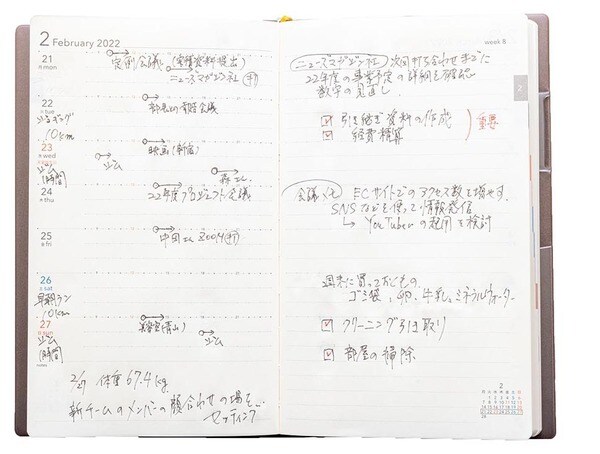 2 February 2022
21
月 mon
定例会議(実績資料提出)
ニューズマガジン社 打
22
火 tue
部長との報告会議
ジョギング
10km
23
水 wed
映画(新宿)
ジム
ジム
(1時間)
森さん
24
木 thu
22年度プロジェクト会議
25
金 fri
中田さん ZOOM 打
26
土 sat
早朝ラン
10km
27
日 sun
美容室(青山)
ジム
ジム
(1時間)
2/27 体重67.4kg
新チームのメンバーの顔合わせの場を
セッティング
week 8
2
ニューズマガジン社 次回打ち合わせまでに
22年度の事業予定の詳細を確認
数字の見直し
引き継ぎ資料の作成
経費精算
重要
会議メモ ECサイトでのアクセス数を増やす。
SNSなどを使って情報発信
↳ YouTuberの起用を検討
週末に買っておくもの
ゴミ袋、卵、牛乳、ミネラルウォーター
クリーニング引き取り
部屋の掃除
2